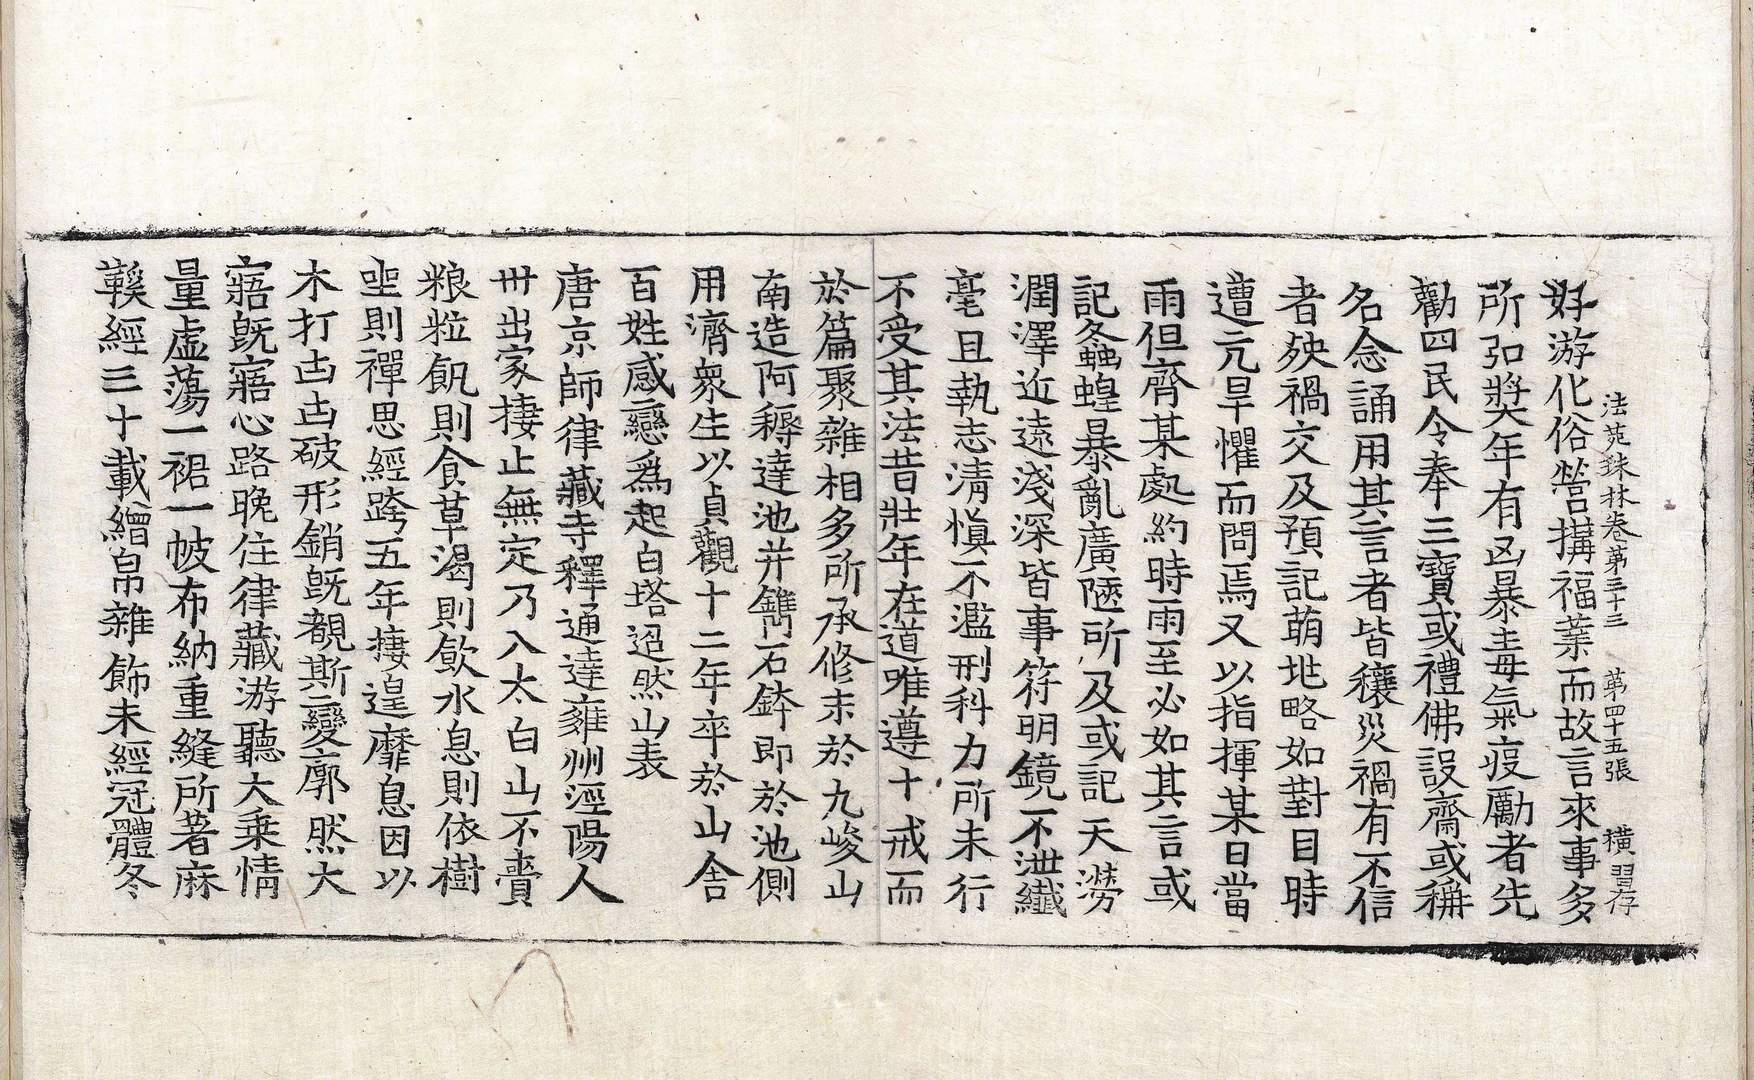 法苑珠林卷第三十三 第四十五張 橫習存
好游化俗營搆福業而故言來事多
所弘奬年有凶暴毒氣疫勵者先
勸四民令奉三寶或禮佛設齋或稱
名念誦用其言者皆穰災禍有不信
者殃禍交及預記萌兆略如對目時
遭亢旱懼而問焉又以指揮某日當
雨但齊某處約時雨至必如其言或
記螽蝗暴亂廣陿所及或記天澇
潤澤近遠淺深皆事符明鏡不泄纖
毫且執志清愼不濫刑科力所未行
不受其法昔壯年在道唯遵十戒而
於篇聚雜相多所承修末於九嵕山
南造阿耨達池并鐫石鉢即於池側
用濟衆生以貞觀十二年卒於山舍
百姓感戀爲起白塔迢然山表
唐京師律藏寺釋通達雍州涇陽人
丗出家捿止無定乃入太白山不賷
粮粒飢則食草渴則飮水息則依樹
坐則禪思經跨五年捿遑靡息因以
木打凷凷破形銷旣覩斯變廓然大
寤旣寤心路晚住律藏游聽大乗情
量虛蕩一裙一帔布納重縫所著麻
鞵經三十載繒帛雜飾未經冠體冬